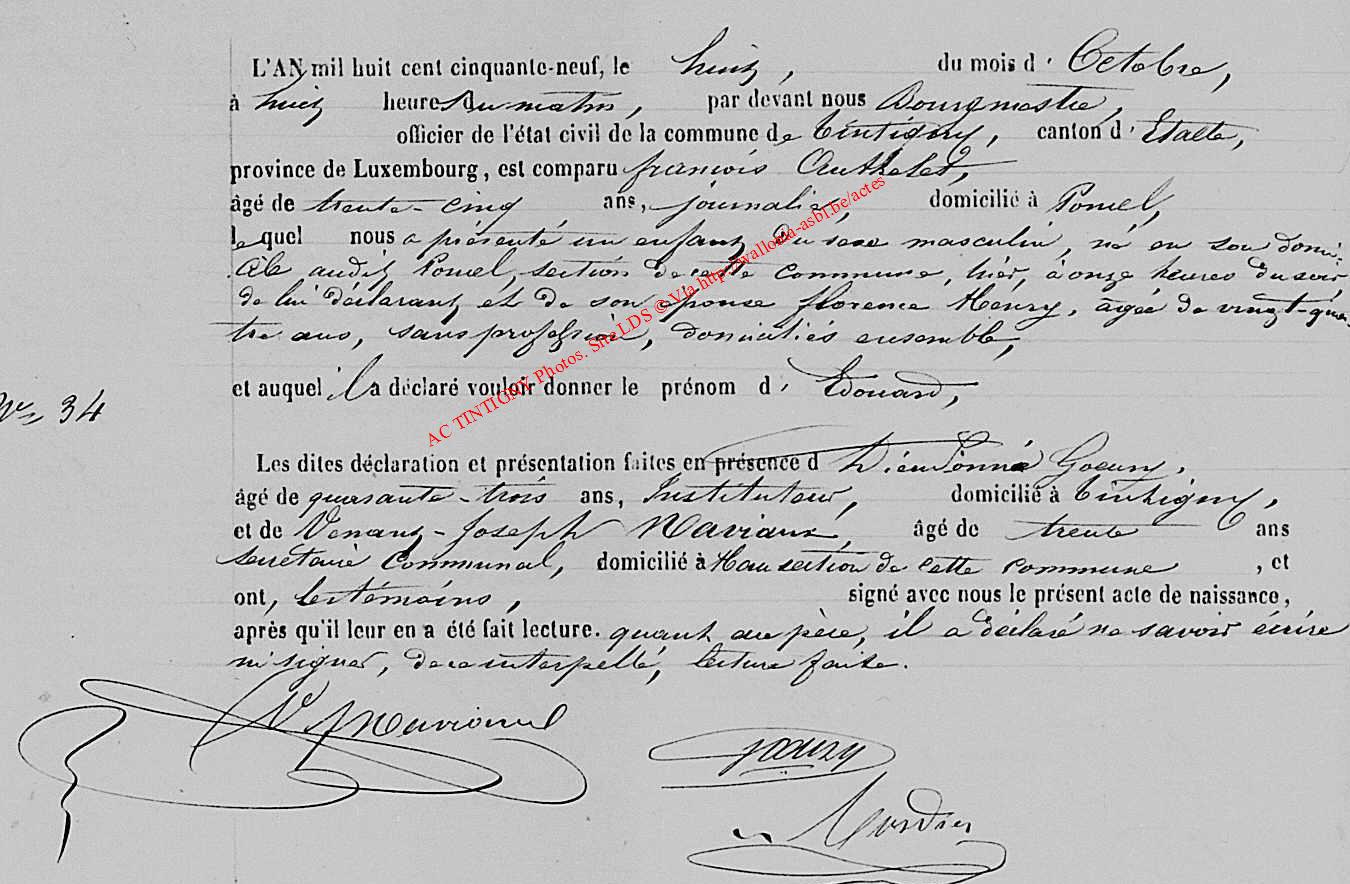 L'AN mil huit cent cinquante-neuf, le huit, du mois d' Octobre,
à huit heures du matin, par devant nous Bourgmestre,
officier de l'état civil de la commune de Tintigny, canton d' Etalle,
province de Luxembourg, est comparu françois Authelet,
âgé de trente-cinq ans, journalier, domicilié à Poncel,
lequel nous a présenté un enfant du sexe masculin, né en son domi-
cile audit Poncel, section de cette commune, hier, à onze heures du soir,
de lui déclarant et de son épouse florence Henry, âgée de vingt-qua-
tre ans, sans profession, domiciliés ensemble,
et auquel il a déclaré vouloir donner le prénom d' Edouard,
N° 34
Les dites déclaration et présentation faites en présence d Dieudonné Goeury,
âgé de quarante-trois ans, Instituteur, domicilié à Tintigny,
et de Venant-Joseph Maviaux, âgé de trente ans
secrétaire Communal, domicilié à Han section de cette commune , et
ont, les témoins, signé avec nous le présent acte de naissance,
après qu'il leur en a été fait lecture. quant au père, il a déclaré ne savoir écrire
ni signer, de ce interpellé, lecture faite.
Goeury
AC TINTIGNY Photos. Site LDS © Via http://wallonia-asbl.be/actes